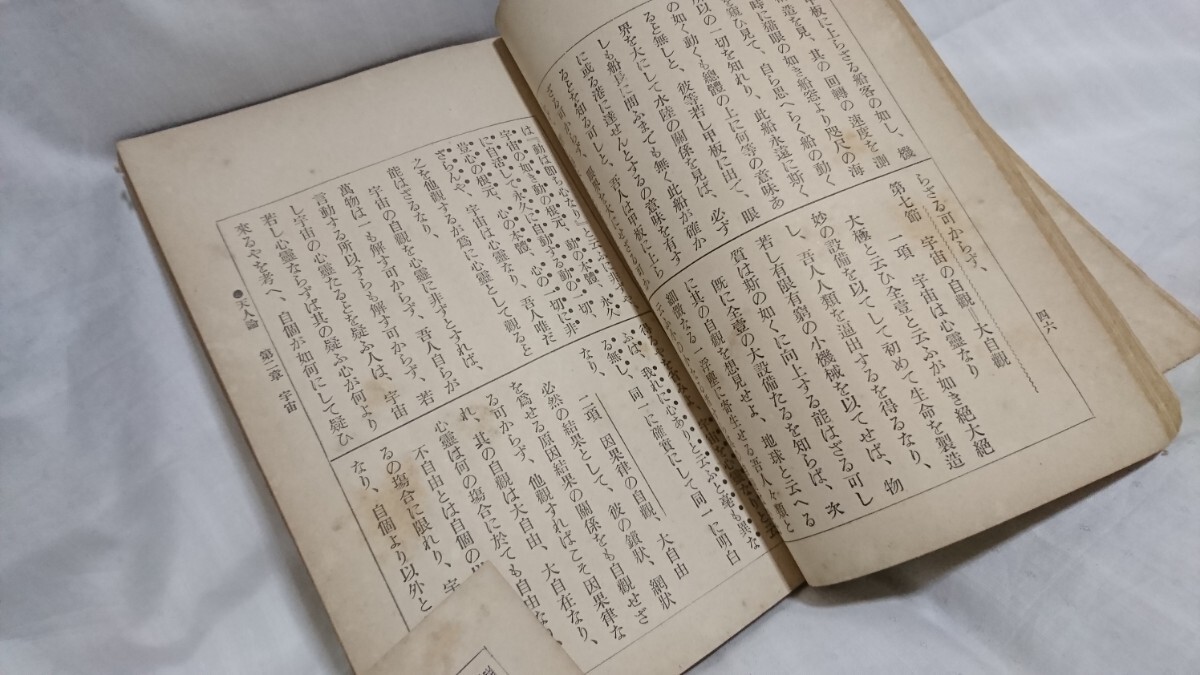 甲板に上らざる船客の如し、機
造を見、其の回轉の速度を測
時に猫眼の如き船窓より咫尺の海
を覗ひ見て、自ら思へらく船の動く
所以の一切を知れり、此船永遠に斯く
の如く動くも總體の上に何等の意味あ
ると無しと、彼等若し甲板に出て、眼
界を大にして水陸の關係を見ば、必ず
しも船長に問ふまでも無く此船が確か
に或る港に達せんとするの意味を有す
るとを知る可しと、吾人は甲板に上ら
らざる可からず、
第七節 宇宙の自觀=大自觀
一項、宇宙は心靈なり
大極と云ひ全壹と云ふが如き絕大絕
妙の設備を以てして初めて生命を製造
し、吾人人類を逼出するを得るなり、
若し有限有窮の小機械を以てせば、物
質は斯の如くに向上する能はざる可し
既に全壹の大設備たるを知らば、次
に其の自觀を想見せよ、地球と云へる
細微なる一浮塵に寄生せる吾人人類と
四六
は『動は即ち心なり』と云ふに
宇宙の如き動の根元、動の本體、永久
に自活して永久に自動する動の一切、
豈心の根元、心の本體、心の一切に非
ざらんや、宇宙は心靈なり、吾人唯だ
之を他觀するが爲に心靈として觀ると
能はざるなり、
宇宙の自觀を心靈に非ずとすれば、
萬物は一も解す可からず、吾人自らが
言動する所以すらも解す可からず、若
し宇宙の心靈たるとを疑ふ人は、宇宙
若し心靈ならずば其の疑ふ心が何より
來るやを考へ、自個が如何にして疑ひ
ふは、我れに心ありと云ふと毫も異な
る無し、同一に確實にして同一に明白
なり、
二項 因果律の自觀、大自由
必然の結果として、彼の鎖狀、網狀
を爲せる原因結果の關係をも自觀せざ
る可からず、他觀すればこそ因果律な
れ、其の自觀は大自由、大自在なり、
心靈は何の場合に於ても自由なり、
不自由とは自個の
るの場合に限れり、宇
なり、自個より以外と
●天人論 第二章 宇宙